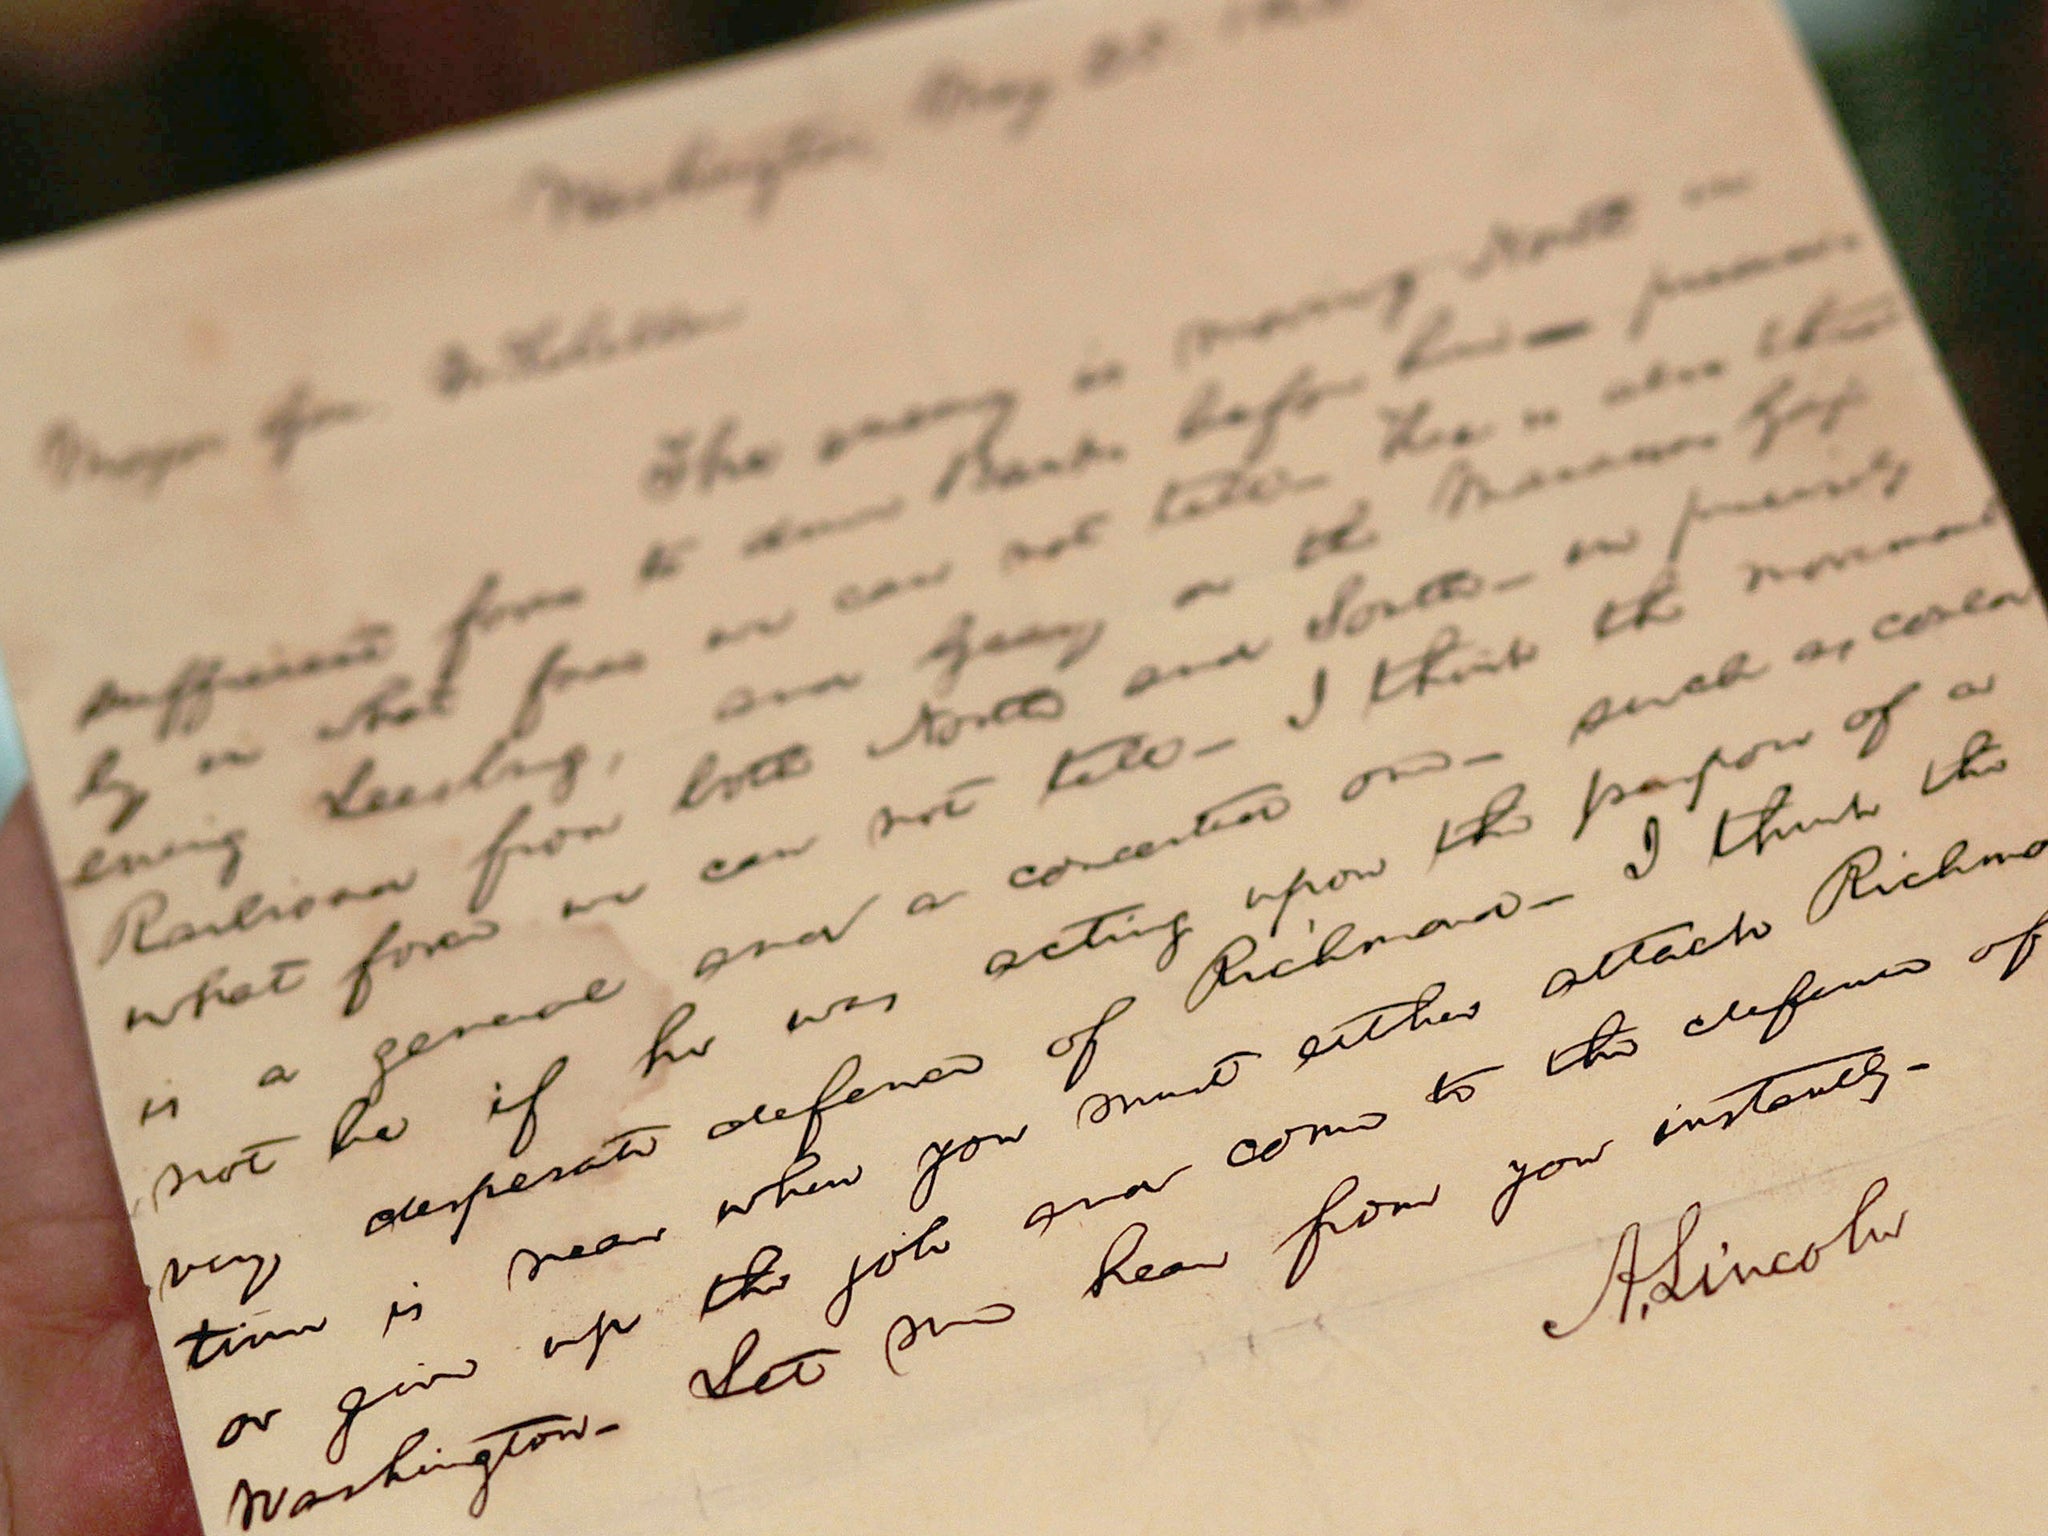 Washington, May 25. 186
Major Gen. McClellan
The enemy is moving North in
sufficient force to drive Banks before him— precise-
ly in what force we can not tell— He is also threat
ening Leesburg, and Geary on the Manassas Gap
Railroad from both North and South— in precisely
what force we can not tell— I think the movement
is a general and a concerted one— such as could
not be if he was acting upon the purpose of a
very desperate defence of Richmond— I think the
time is near when you must either attack Richmo
or give up the job and come to the defence of
Washington— Let me hear from you instantly—
A. Lincoln